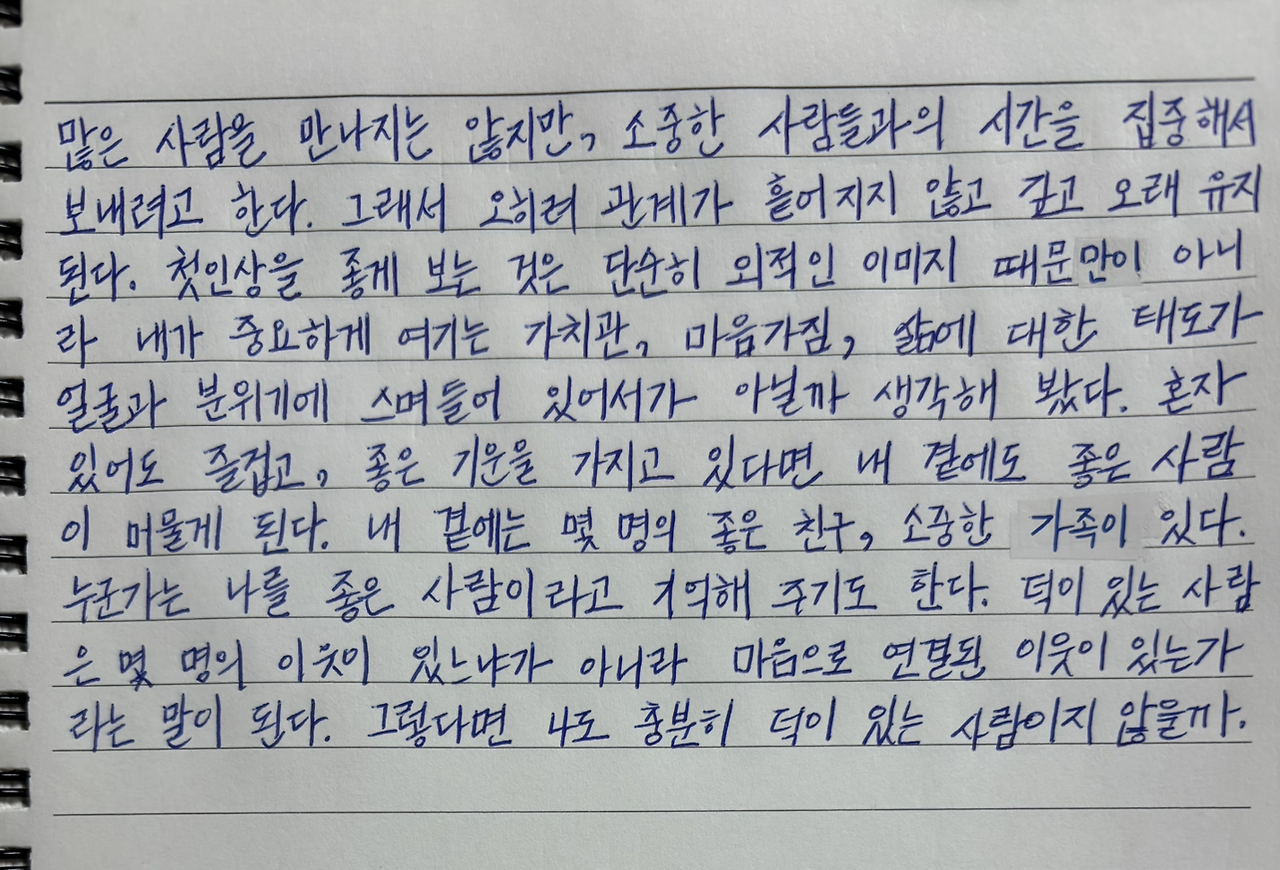 많은 사람을 만나지는 않지만, 소중한 사람들과의 시간을 집중해서
보내려고 한다. 그래서 오히려 관계가 흩어지지 않고 깊고 오래 유지
된다. 첫인상을 좋게 보는 것은 단순히 외적인 이미지 때문만이 아니
라 내가 중요하게 여기는 가치관, 마음가짐, 삶에 대한 태도가
얼굴과 분위기에 스며들어 있어서가 아닐까 생각해 봤다. 혼자
있어도 즐겁고, 좋은 기운을 가지고 있다면 내 곁에도 좋은 사람
이 머물게 된다. 내 곁에는 몇 명의 좋은 친구, 소중한 가족이 있다.
누군가는 나를 좋은 사람이라고 기억해 주기도 한다. 덕이 있는 사람
은 몇 명의 이웃이 있느냐가 아니라 마음으로 연결된 이웃이 있는가
라는 말이 된다. 그렇다면 나도 충분히 덕이 있는 사람이지 않을까.